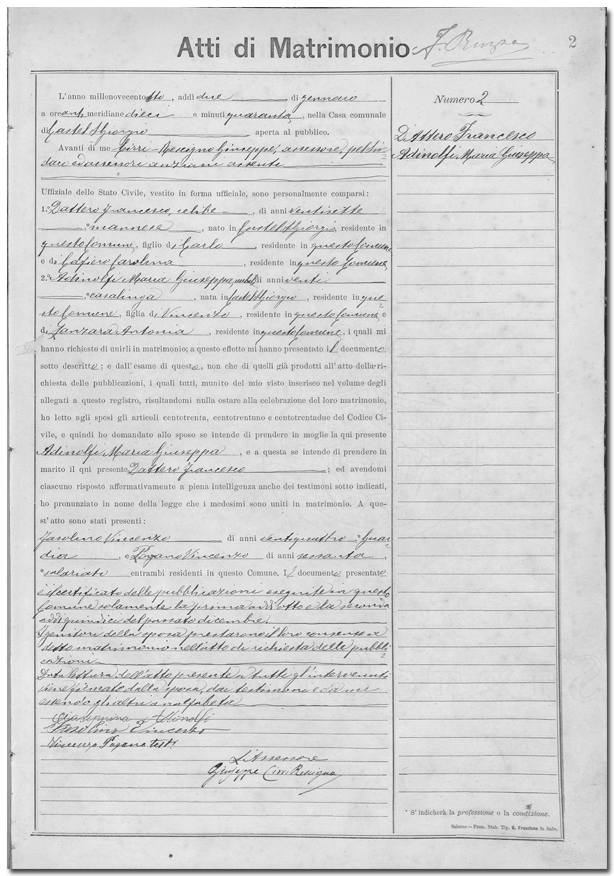 Atti di Matrimonio
2
L'anno millenovecentotto, addì due di gennaio
a ore antimeridiane dieci e minuti quaranta, nella Casa comunale
di Castel S Giorgio aperta al pubblico.
Avanti di me Cirri Rescigno Giuseppe, assessore, pel Sin
daco ed assessori anziani assenti
Uffiziale dello Stato Civile, vestito in forma ufficiale, sono personalmente comparsi:
1.° Dattero Francesco, celibe, di anni ventisette
* nato in Castel S Giorgio, residente in
questo Comune, figlio di Carlo, residente in questo Comune
e di Cafiero Carolina, residente in questo Comune
2.° Adinolfi Maria Giuseppa, nubile di anni venti
* casalinga, nata in Castel S Giorgio, residente in que
sto Comune, figlia di Vincenzo, residente in questo Comune e
da Lanzara Antonia, residente in questo Comune, i quali mi
hanno richiesto di unirli in matrimonio; a questo effetto mi hanno presentato il documento
sotto descritto; e dall'esame di questo, non che di quelli già prodotti all'atto della ri-
chiesta delle pubblicazioni, i quali tutti, munito del mio visto inserisco nel volume degli
allegati a questo registro, risultandomi nulla ostare alla celebrazione del loro matrimonio,
ho letto agli sposi gli articoli centotrenta, centotrentuno e centotrentadue del Codice Ci-
vile, e quindi ho domandato allo sposo se intende di prendere in moglie la qui presente
Adinolfi Maria Giuseppa, e a questa se intende di prendere in
marito il qui presente Dattero Francesco; ed avendomi
ciascuno risposto affermativamente a piena intelligenza anche dei testimoni sotto indicati,
ho pronunziato in nome della legge che i medesimi sono uniti in matrimonio. A que-
st'atto sono stati presenti:
Fasolino Vincenzo di anni ventiquattro * Guar
dia, e Pagano Vincenzo di anni sessanta,
* salariati entrambi residenti in questo Comune. Il documento presentato
è il certificato delle pubblicazioni eseguite in questo
Comune solamente la prima addì otto e la seconda
addì quindici del passato dicembre.
I genitori della sposa prestarono il loro consenso a
detto matrimonio nell'atto di richiesta delle pubbli
cazioni
Data lettura dell'atto presente a tutti gl'intervenuti
si è firmato dalla sposa, dai testimoni e da me
essendo gli altri analfabeti
Giuseppina Adinolfi
Fasolino Vincenzo
Vincenzo Pagano test
L'Assessore
Giuseppe Cirri Rescigno
Numero 2
Dattero Francesco
Adinolfi Maria Giuseppa
* S' indicherà la professione o la condizione.
Salerno — Prem. Stab. Tip.